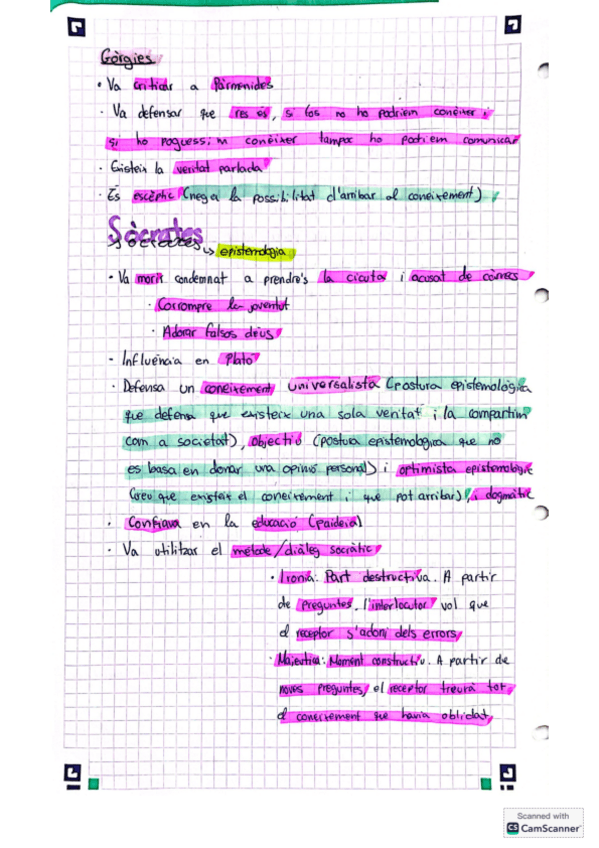 Gòrgies
· Va criticar a Pàrmenides
· Va defensar que res és, si fos no ho podriem conèixer i
si ho poguessim conèixer tampoc ho podriem comunicar
· Existeix la veritat parlada
· És escèptic (nega la possibilitat d'arribar al coneixement)
Sòcrates
Sòcrates ↳ epistemologia
· Va morir condemnat a prendre's la cicuta i acusat de càrrecs
· Corrompre la joventut
· Adorar falsos déus
· Influència en Plató
· Defensa un coneixement universalista (postura epistemològica
que defensa que existeix una sola veritat i la compartim
com a societat), objectiu (postura epistemològica que no
es basa en donar una opinió personal) i optimista epistemològic
(creu que existeix el coneixement i que pot arribar) i dogmàtic
· Confiava en la educació (paideia)
· Va utilitzar el mètode/diàleg socràtic
· Ironia: Part destructiva. A partir
de preguntes, l'interlocutor vol que
el receptor s'adoni dels errors
· Maièutica: Moment constructiu. A partir de
noves preguntes, el receptor treurà tot
el coneixement que havia oblidat
Scanned with
CS CamScanner